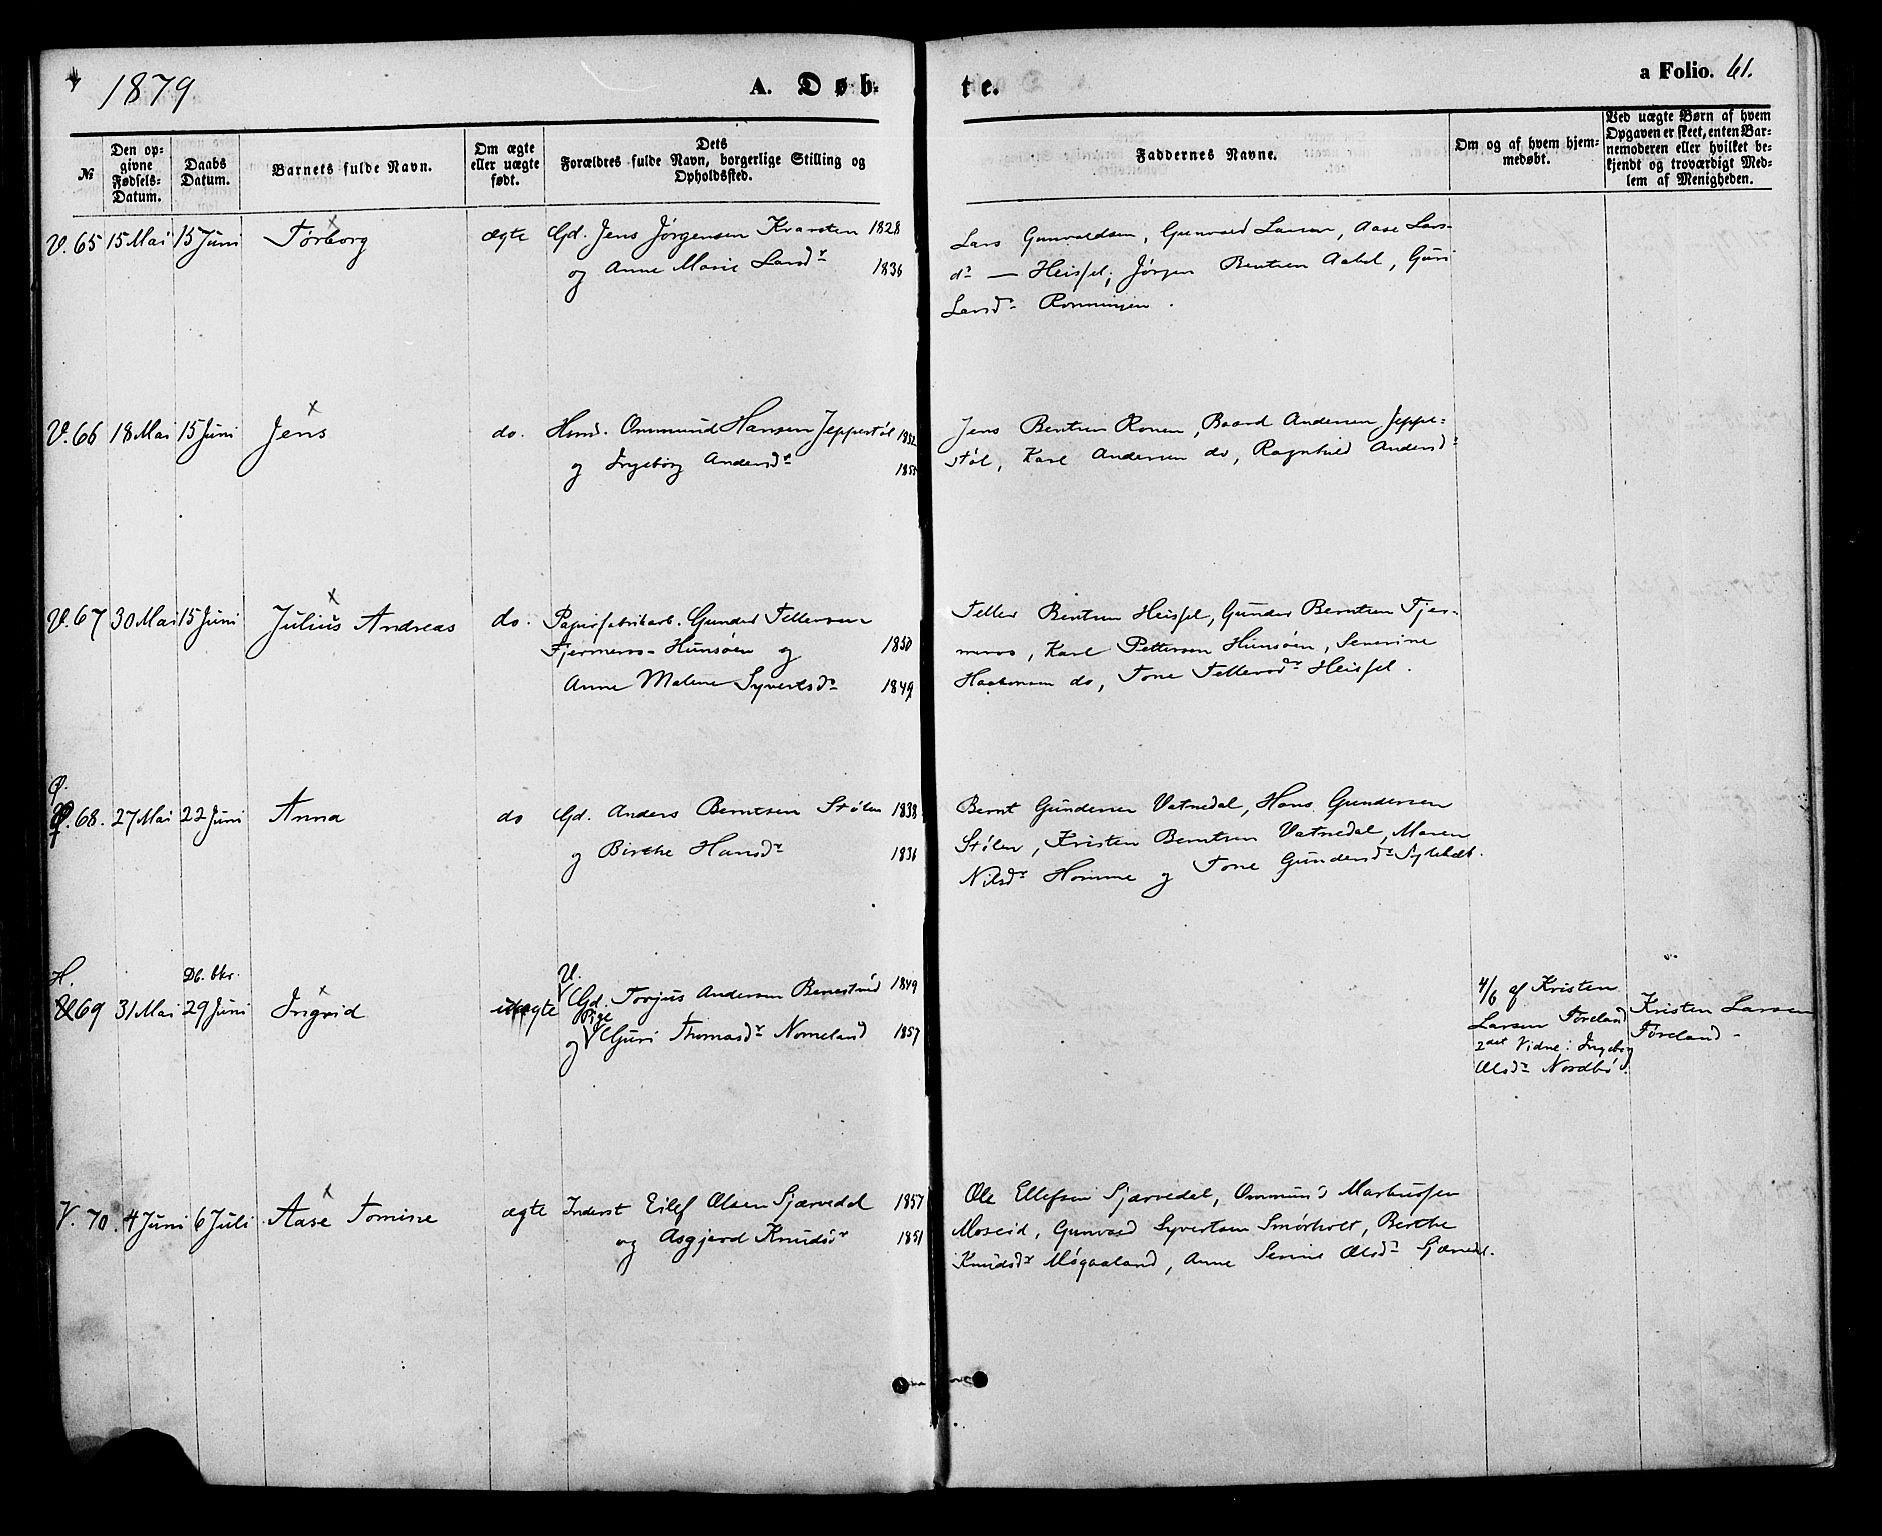 1879
A. Døb-
te.
a Folio. 61.
№
Den op-
givne
Fødsels-
Datum.
Daabs
Datum.
Barnets fulde Navn.
Om ægte
eller uægte
født.
Dets
Forældres fulde Navn, borgerlige Stilling og
Opholdssted.
Faddernes Navne.
Om og af hvem hjem-
medøbt.
Ved uægte Børn af hvem
Opgaven er skeet, enten Bar-
nemoderen eller hvilket be-
kjendt og troværdigt Med-
lem af Menigheden.
V. 65 15 Mai 15 Juni Torborg ægte Gd. Jens Jørgensen Kvarsten 1828
og Anne Marie Larsdr 1836
Lars Gunvaldsen, Gunvald Larsen, Aase Lars-
dr — Heisel, Jørgen Bentsen Aabel, Guri
Larsdr Ronningen.
V. 66 18 Mai 15 Juni Jens do. Hmd. Ommund Hansen Jeppestøl 1852
og Ingeborg Andersdr
Jens Bentsen Ronen, Baard Andersen Jeppe-
støl, Karl Andersen do, Ragnhild Andersdr
V. 67 30 Mai 15 Juni Julius Andreas do. Papirfabrikarb. Gunder Tellevsen
Fjermeros-Hunsøen og 1850
Anne Malene Syvertsdr 1849
Tellev Bentsen Heisel, Gunder Berntsen Fjer-
meros, Karl Pettersen Hunsøen, Severine
Haakonsen do, Tone Tellevsdr Heisel.
Ø.
68. 27 Mai 22 Juni Anna do Gd. Anders Berntsen Stølen 1838
og Birthe Hansdr 1836
Bernt Gundersen Vatnedal, Hans Gundersen
Stølen, Kristen Berntsen Vatnedal, Maren
Nilsdr Homme og Tone Gundersdr
H.
Db. bkr.
69 31 Mai 29 Juni Ingrid uægte V. Gd. Torjus Andersen Benestvid 1849
Pige
og Guri Thomasdr Nomeland 1857
4/6 af Kristen
Larsen Føreland
2det Vidne: Ingeborg
Olsdr Nordbø.
Kristen Larsen
Føreland
V. 70. 4 Juni 6 Juli Aase Tomine ægte Inderst Eilef Olsen Sjærvedal 1857
og Asgjerd Knudsdr 1851
Ole Ellefsen Sjærvedal, Ommund Markussen
Moseid, Gunvald Syvertsen Smørholt, Berthe
Knudsdr Møgaaland, Anne Serine Olsdr Sjærvedl.